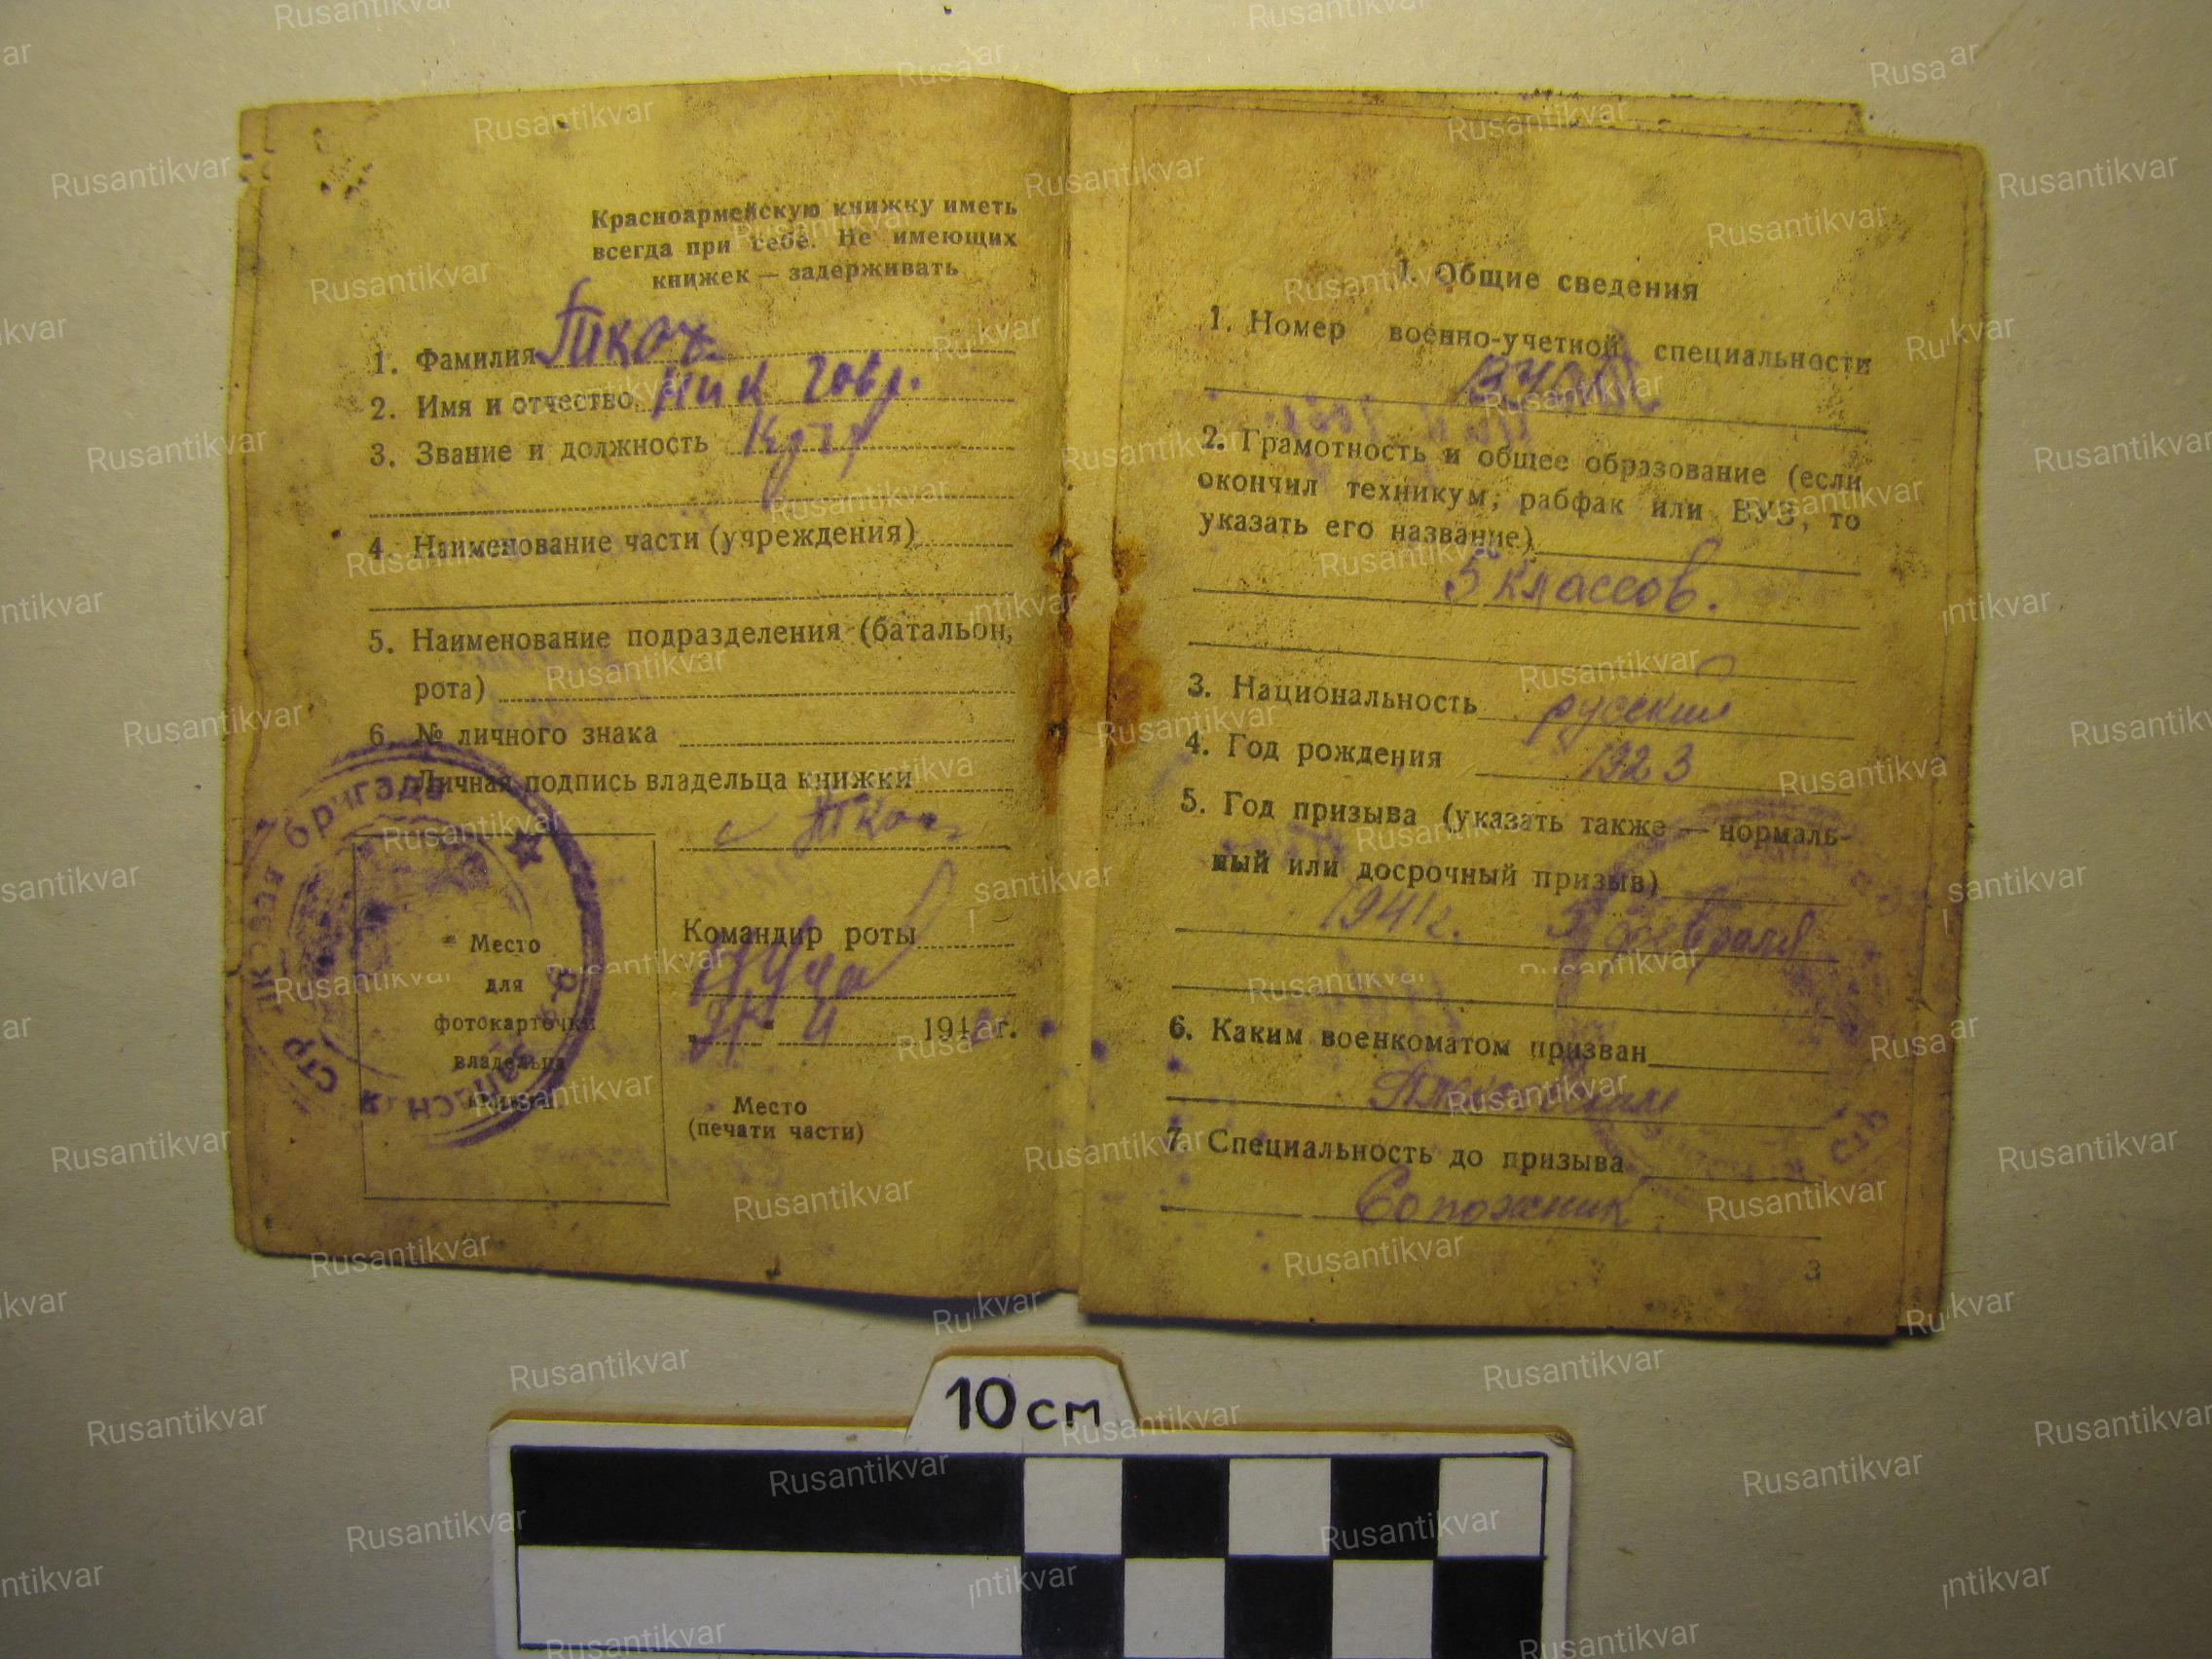 Красноармейскую книжку иметь
всегда при себе. Не имеющих
книжек — задерживать
1. Фамилия Ткач.
2. Имя и отчество Ник Гавр.
3. Звание и должность
4. Наименование части (учреждения)
5. Наименование подразделения (батальон,
рота)
6. № личного знака
Личная подпись владельца книжки
Ткач
Командир роты
194 г.
Место
для
фотокарточки
владельца
Место
(печати части)
бригада
I. Общие сведения
1. Номер военно-учетной специальности
2. Грамотность и общее образование (если
окончил техникум, рабфак или ВУЗ, то
указать его название)
5 классов.
3. Национальность русский
4. Год рождения 1923
5. Год призыва (указать также — нормаль-
ный или досрочный призыв)
1941г. февраля
6. Каким военкоматом призван
7. Специальность до призыва
Сопожник
3
10см
Rusantikvar